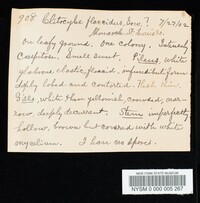 908 Clitocybe flaccidus, Sow.? 7/27/02
on leafy ground. One colony. Intensely
Caespitose. Smell sweet. Pileus, white
glabrous elastic flaccid, infundibuliform
deeply lobed and contorted. Flesh thin.
Gills, white then yellowish, crowded, nar-
row, deeply decurrent. Stem imperfectly
hollow, brown but covered with white
mycelium. I have no spores.
NEW YORK STATE MUSEUM
NYSM 0 000 005 267